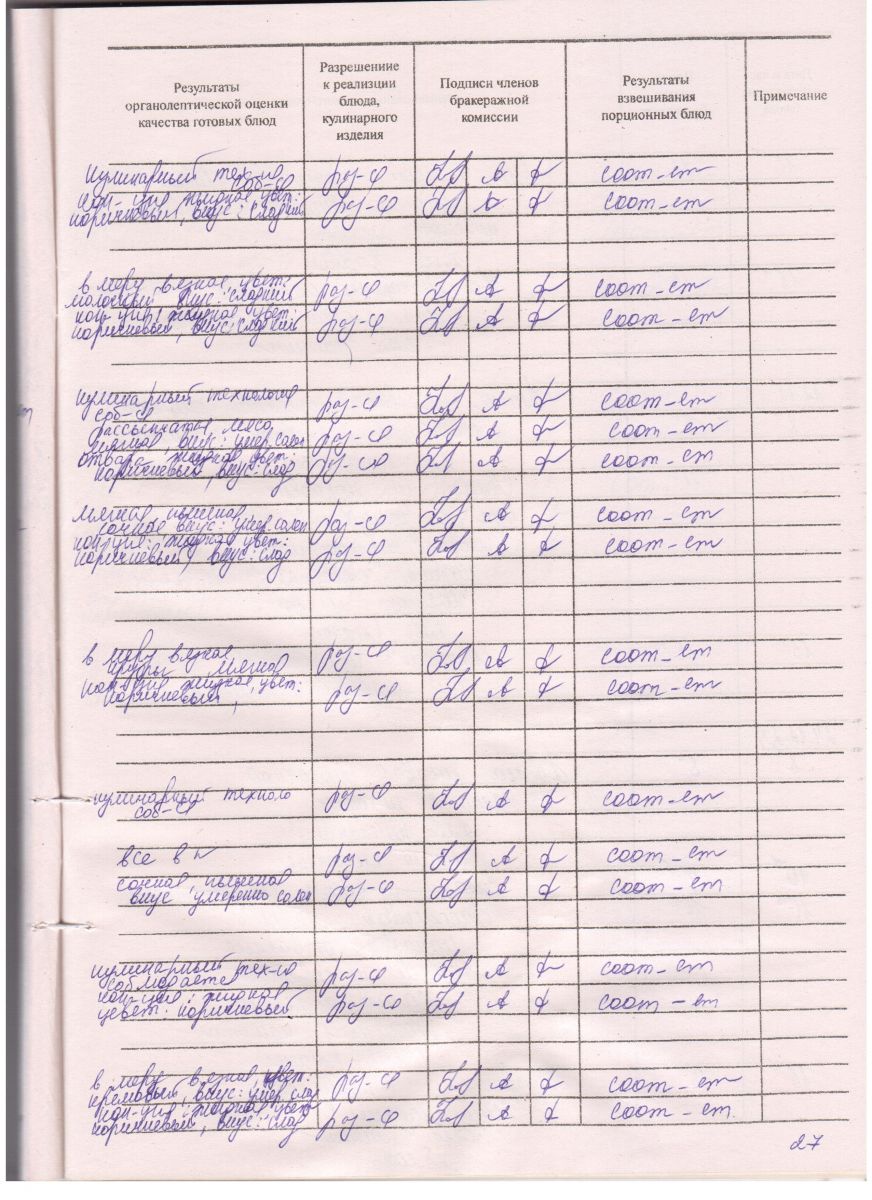 Результаты
органолептической оценки
качества готовых блюд
Разрешениие
к реализции
блюда,
кулинарного
изделия
Подписи членов
бракеражной
комиссии
Результаты
взвешивания
порционных блюд
Примечание
кулинарный тех-ия
соб-ся раз-ся А соот-ет
кон-ция жидкая, цвет:
коричневый, вкус: сладкий раз-ся А соот-ет
в меру вязкая, цвет:
молочный вкус: сладкий раз-ся А соот-ет
кон-ция жидкая, цвет:
коричневый, вкус: сладкий раз-ся А соот-ет
кулинарный технология
соб-ся раз-ся А соот-ет
рассыпчатая, мясо
мягкая, вкус: умер. солен раз-ся А соот-ет
отвара жидкая, цвет:
коричневый, вкус: слад раз-ся А соот-ет
Мягкая, пышная
сочная вкус: умер. солен раз-ся А соот-ет
кон-ция: жидкая, цвет:
коричневый, вкус: слад раз-ся А соот-ет
в меру вязкая
крупы мягкая раз-ся А соот-ет
кон-ция жидкая, цвет:
коричневый, раз-ся А соот-ет
кулинарный техноло
соб-ся раз-ся А соот-ет
все в н раз-ся А соот-ет
сочная, пышная
вкус умеренно солен раз-ся А соот-ет
кулинарный тех-ия
соблюдается раз-ся А соот-ет
кон-ция: жидкая
цвет: коричневый раз-ся А соот-ет
в меру вязкая, цвет:
кремовый, вкус: умер слад раз-ся А соот-ет
кон-ция: жидкая цвет
коричневый, вкус: слад раз-ся А соот-ет.
27